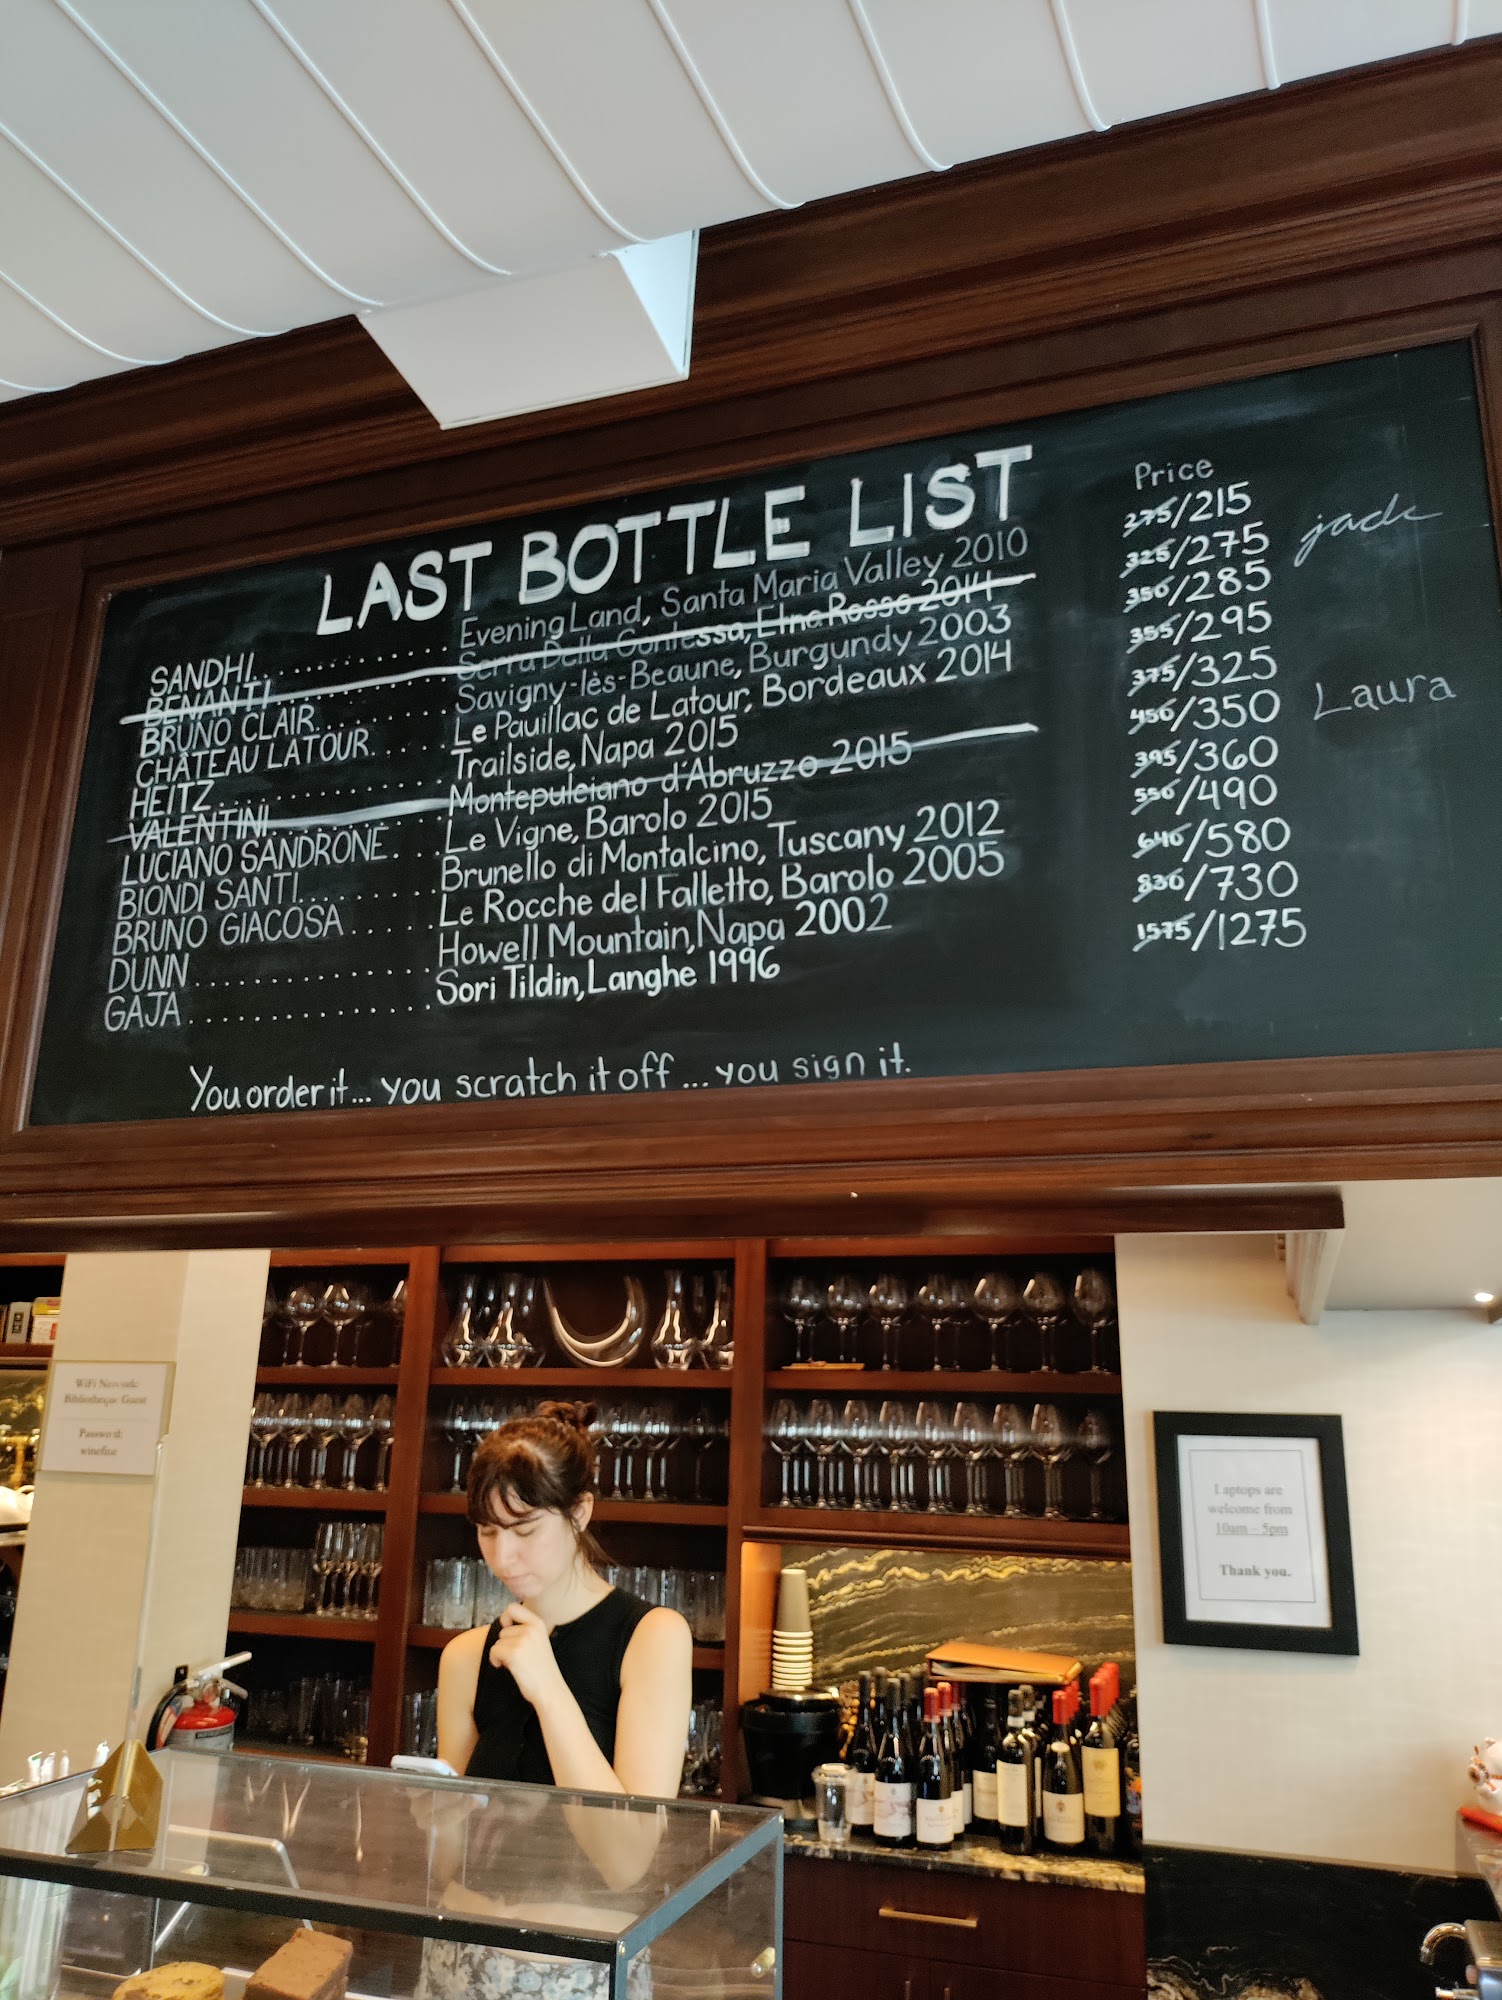 LAST BOTTLE LIST
Price
SANDHI.............. Evening Land, Santa Maria Valley 2010 275/215
BENANTI.............. Serra Della Contessa, Etna Rosso 2014 325/275 jade
BRUNO CLAIR.......... Savigny-lès-Beaune, Burgundy 2003 350/285
CHÂTEAU LATOUR..... Le Pauillac de Latour, Bordeaux 2014 355/295
HEITZ................ Trailside, Napa 2015 375/325
VALENTINI............ Montepulciano d'Abruzzo 2015 450/350 Laura
LUCIANO SANDRONE... Le Vigne, Barolo 2015 395/360
BIONDI SANTI......... Brunello di Montalcino, Tuscany 2012 550/490
BRUNO GIACOSA..... Le Rocche del Falletto, Barolo 2005 640/580
DUNN................ Howell Mountain, Napa 2002 830/730
GAJA................ Sori Tildin, Langhe 1996 1575/1275
You order it... you scratch it off ... you sign it.
WiFi Network:
Bibliotheque Guest
Password:
winefine
Laptops are
welcome from
10am – 5pm
Thank you.